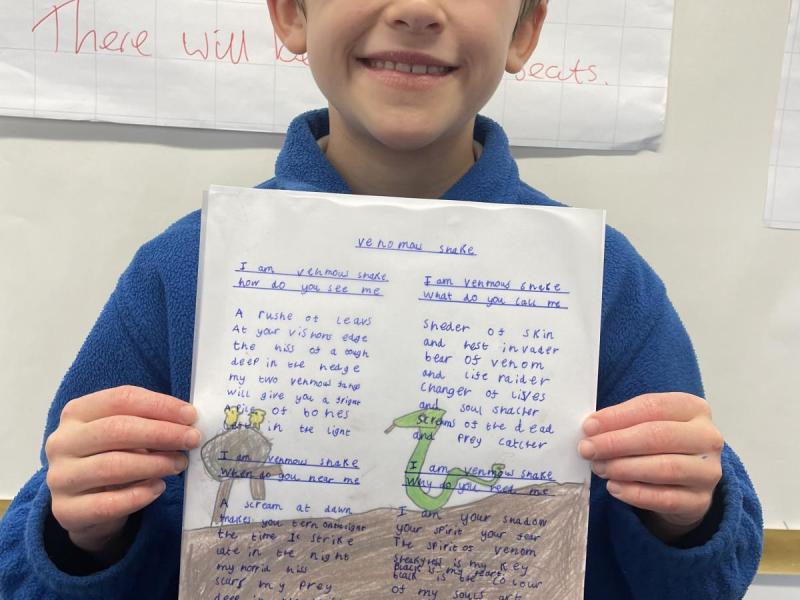 There will be beats.
venomow snake
I am venmow snake
how do you see me
A rushe of leavs
At your visions edge
the hiss of a cough
deep in the hedge
my two venmow fangs
will give you a fright
of bones
in the light
I am venmow snake
When do you hear me
A scream at dawn
makes you tern
the time I strike
late in the night
my horrid hiss
scars my prey
deep in
I am venmows snake
What do you call me
Sheder of skin
and nest invader
bear of venom
and life raider
Changer of lives
and soul snacher
Screams of the dead
and prey catcher
I am venmows snake
Why do you need me
I am your shadow
your spirit your fear
The spirit of venom
is my key
black is the colour
of my souls art